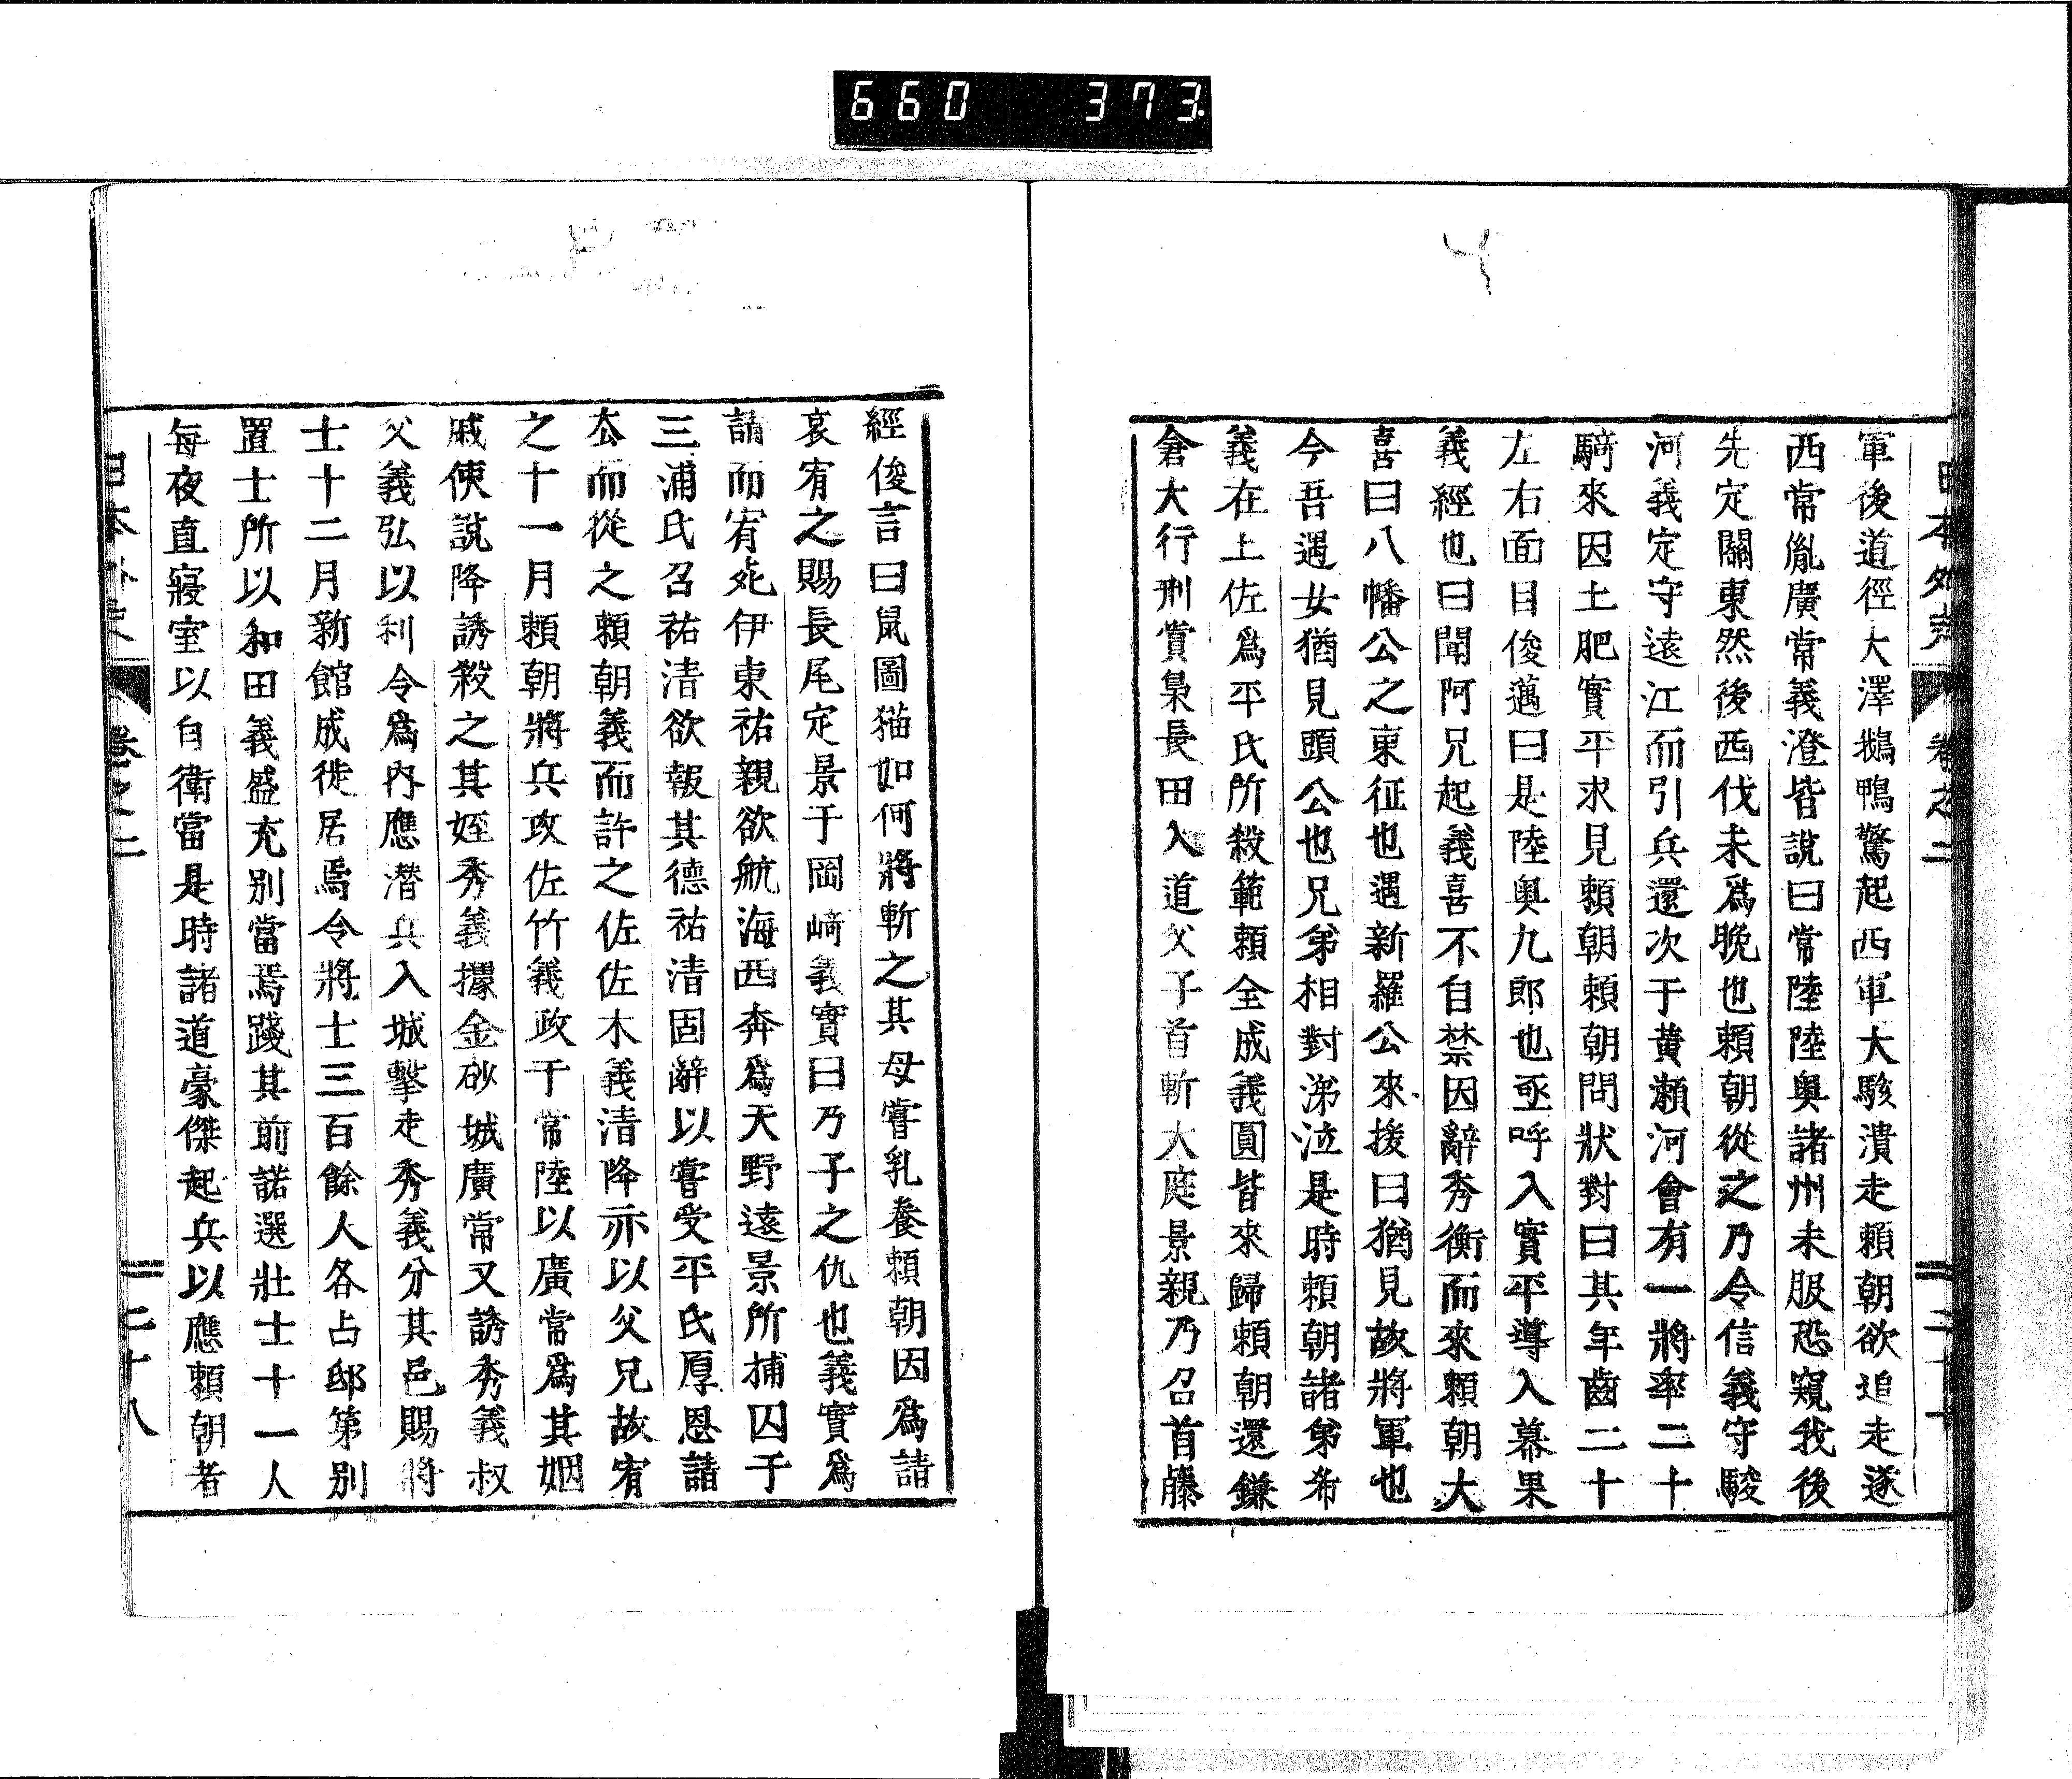 660 373
軍後道徑大澤鵝鴨驚起西軍大駭潰走賴朝欲追走遂
西常胤廣常義澄皆說曰常陸陸奥諸州未服恐窺我後
先定關東然後西伐未爲晚也賴朝從之乃令信義守駿
河義定守遠江而引兵還次于黄瀬河會有一將率二十
騎來因土肥實平求見賴朝賴朝問狀對曰其年齒二十
左右面目俊邁曰是陸奥九郎也亟呼入實平導入幕果
義經也曰聞阿兄起義喜不自禁因辭秀衡而來賴朝大
喜曰八幡公之東征也遇新羅公來援曰猶見故將軍也
今吾遇女猶見頭公也兄弟相對涕泣是時賴朝諸弟希
義在土佐爲平氏所殺範賴全成義圓皆來歸賴朝還鎌
倉大行刑賞梟長田入道父子首斬大庭景親乃召首藤
日本外史 卷之二
經俊言曰鼠圖猫如何將斬之其母嘗乳養賴朝因爲請
哀宥之賜長尾定景于岡﨑義實曰乃子之仇也義實爲
請而宥死伊東祐親欲航海西奔爲天野遠景所捕囚于
三浦氏召祐清欲報其德祐清固辭以嘗受平氏厚恩請
去而從之賴朝義而許之佐佐木義清降亦以父兄故宥
之十一月賴朝將兵攻佐竹義政于常陸以廣常爲其姻
戚使說降誘殺之其姪秀義據金砂城廣常又誘秀義叔
父義弘以利令爲内應潛兵入城擊走秀義分其邑賜將
士十二月新館成徙居焉令將士三百餘人各占邸第別
置士所以和田義盛充別當焉踐其前諾選壯士十一人
每夜直寢室以自衛當是時諸道豪傑起兵以應賴朝者
日本外史 卷之二 二十八